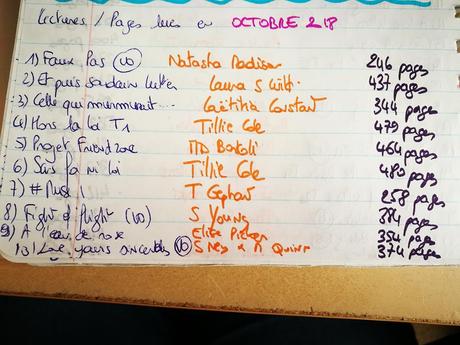 Lectures / Pages lues en OCTOBRE 2018
1) Faux Pas (VO) Natasha Madison 246 pages
2) Et puis soudain Laura S Wild 437 pages
3) Celle qui murmurait... Laëtitia Constant 344 pages
4) Hors la loi T1 Tillie Cole 479 pages
5) Projet Friendzone MD Bortoli 464 pages
6) Sans foi ni loi Tillie Cole 480 pages
7) # T Gephart 258 pages
8) Fight or flight (VO) S Young 384 pages
9) A de Elite Picker 354 pages
10) Love, yours sincerely (VO) S Ney & M Quinn 374 pages